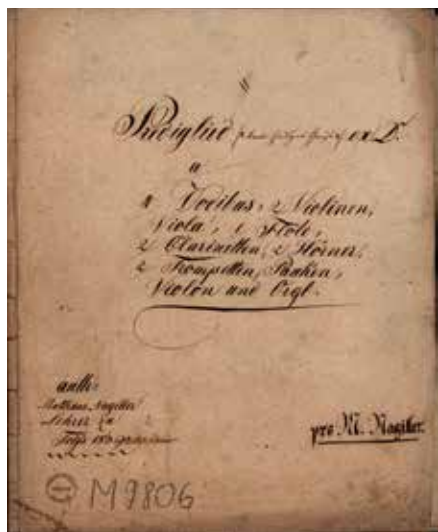 Prediglied ex D.
a
4 Vocibus, 2 Violinen,
Viola, 1 Flöte,
2 Clarinetten, 2 Hörner,
2 Trompetten, Pauken,
Violon und Orgl.
auth:
Mathäus Nagiller
Lehrer
pro M. Nagiller.
M 9806